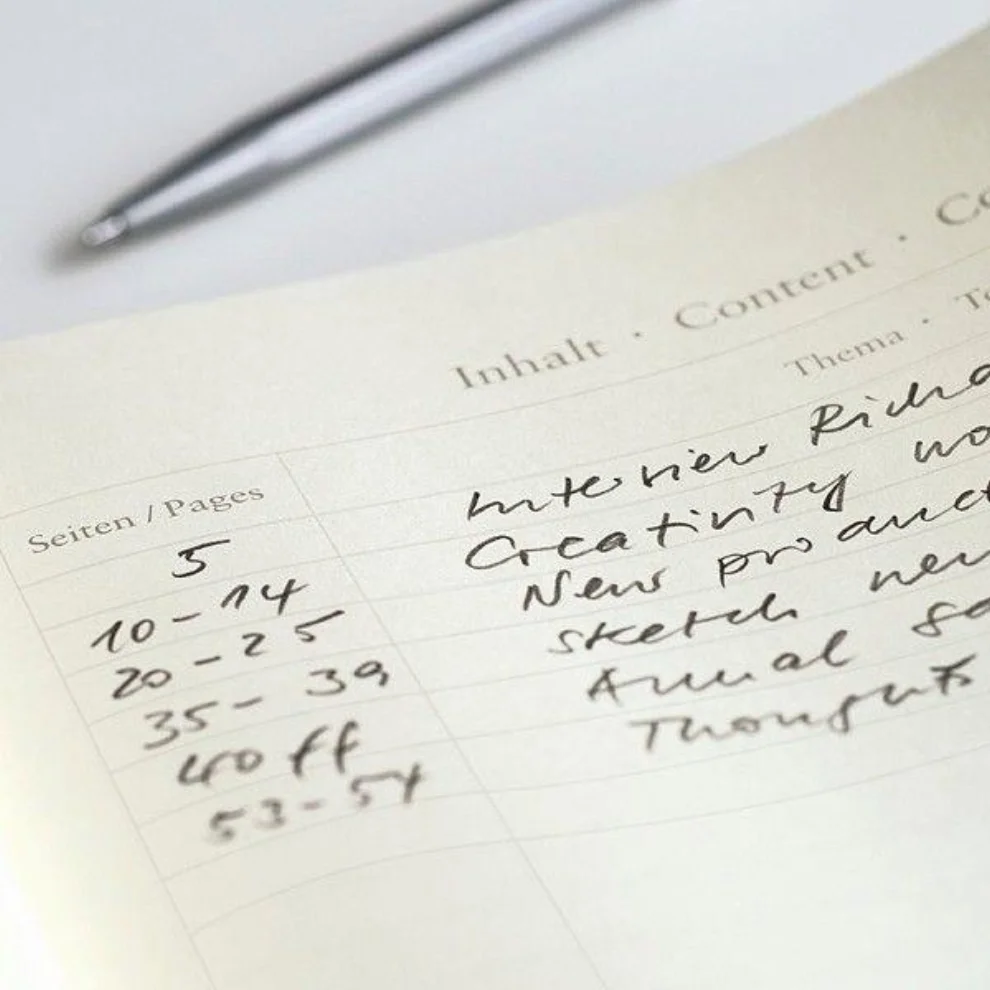 Inhalt · Content · Co
Thema · To
Seiten / Pages
5 Interview Richa
10-14 Creativity wo
20-25 New product
35-39 Sketch new
40 ff Annual sa
53-54 Thoughts